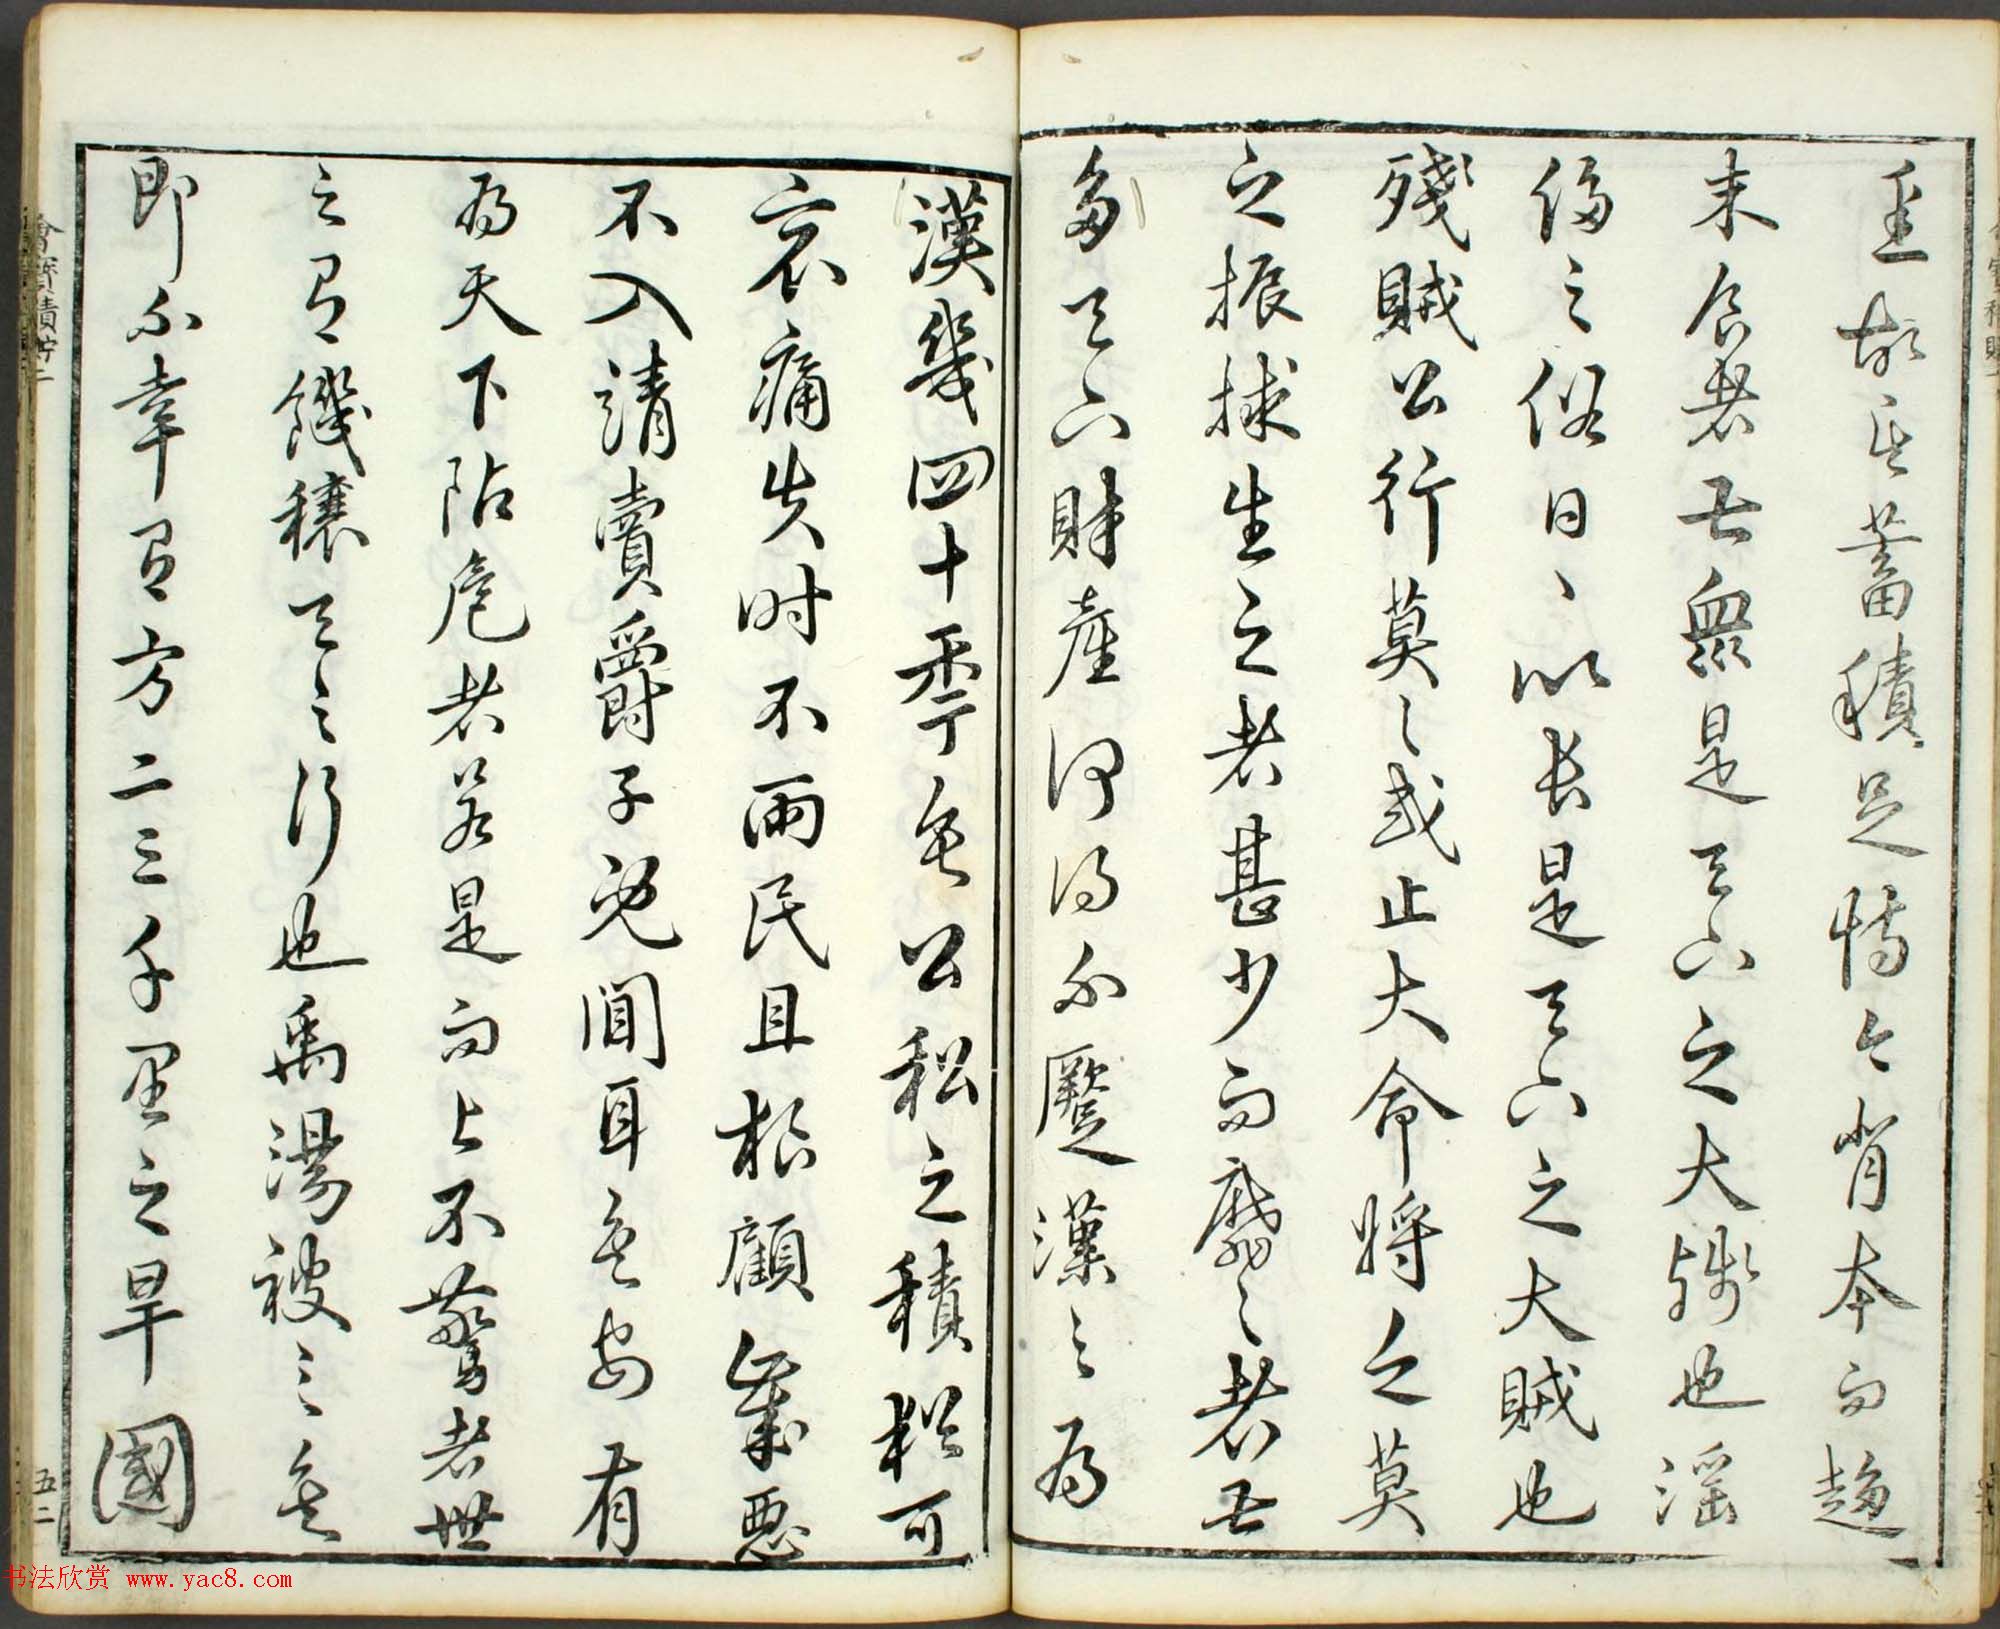 至故其蓄積足恃今背本而趨
末食者甚衆是天下之大殘也淫
侈之俗日、以長是天下之大賊也
殘賊公行莫之或止大命將乏莫
之振捄生之者甚少而靡之者甚
多天下財產何得不蹷漢之為
漢幾四十年矣公私之積猶可
哀痛失时不雨民且狼顧歲惡
不入請賣爵子既聞耳矣安有
為天下阽危者若是而上不驚者世
之有饑穰天之行也禹湯被之矣
即不幸有方二三千里之旱國
積貯二
五二
书法欣赏 www.yac8.com